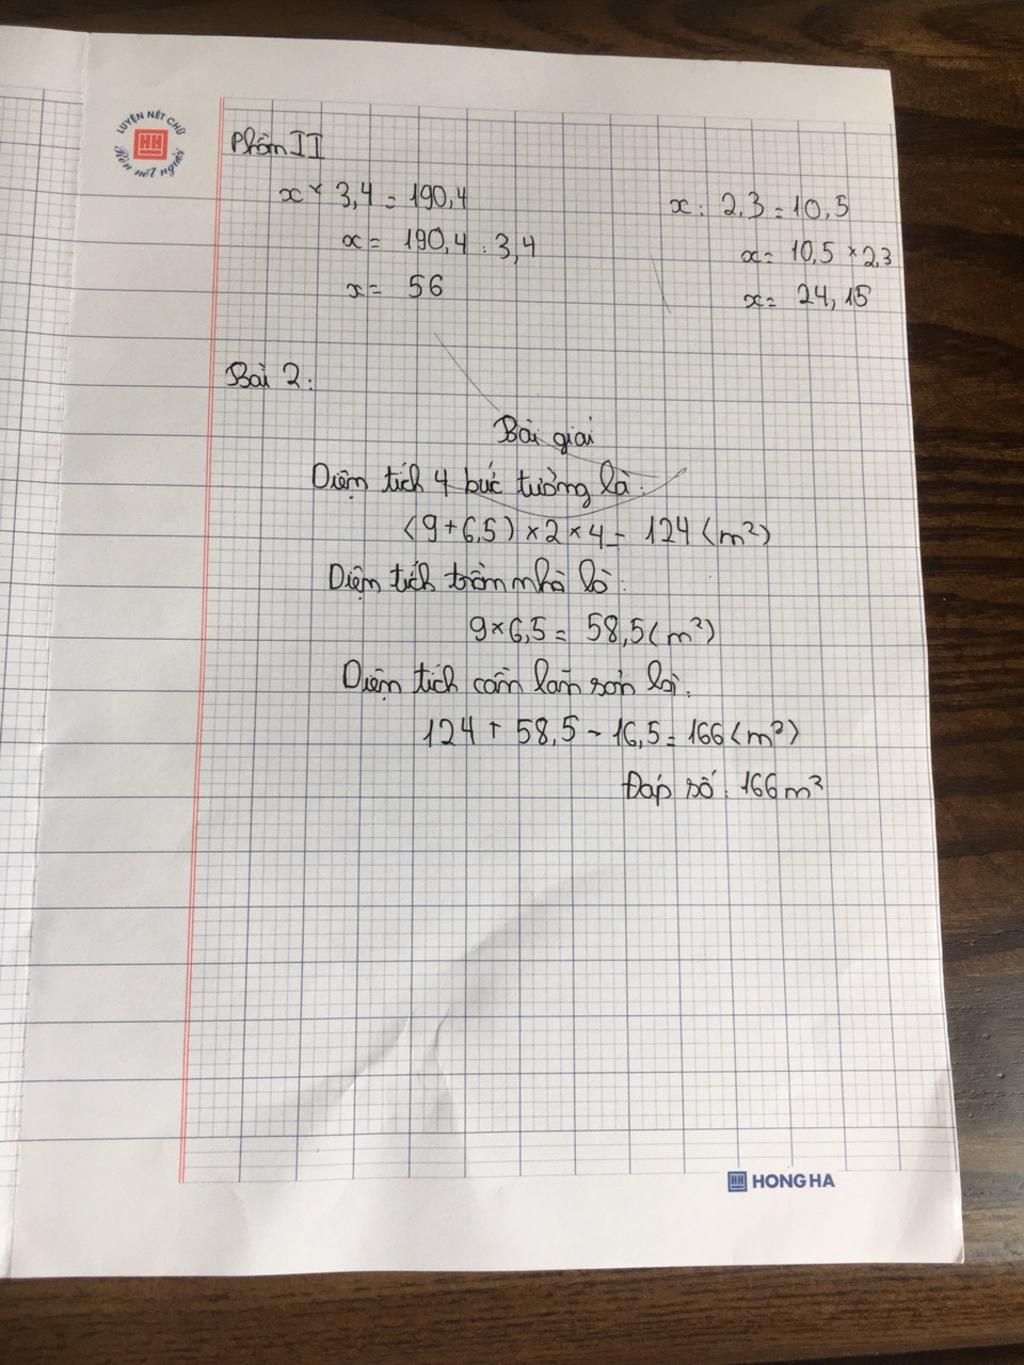 LUYỆN NÉT CHỮ
HH
Rèn nết người
Phần II
x × 3,4 = 190,4
x = 190,4 : 3,4
x = 56
x : 2,3 = 10,5
x = 10,5 × 2,3
x = 24,15
Bài 2:
Bài giải
Diện tích 4 bức tường là:
(9+6,5) × 2 × 4 = 124 (m²)
Diện tích trần nhà là:
9 × 6,5 = 58,5 (m²)
Diện tích cần làm sơn lại.
124 + 58,5 - 16,5 = 166 (m²)
Đáp số : 166 m²
HH HONG HA